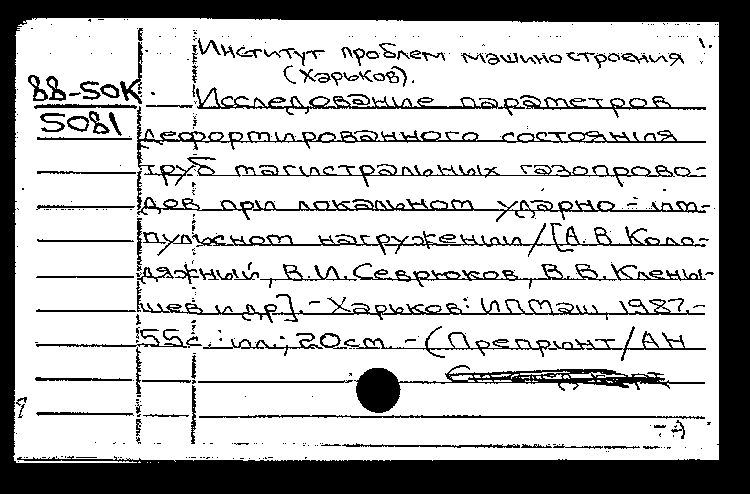 Институт проблем машиностроения 1.
(Харьков).
88-5OK
5081
Исследование параметров
деформированного состояния
труб магистральных газопрово-
дов при локальном ударно-им-
пульсном нагружении/[А.В.Коло-
дяжный, В.И.Севрюков, В.В.Клены-
шев и др].-Харьков: ИПМаш, 1987.-
55с.:ил.; 20см.-(Препринт/АН
-А